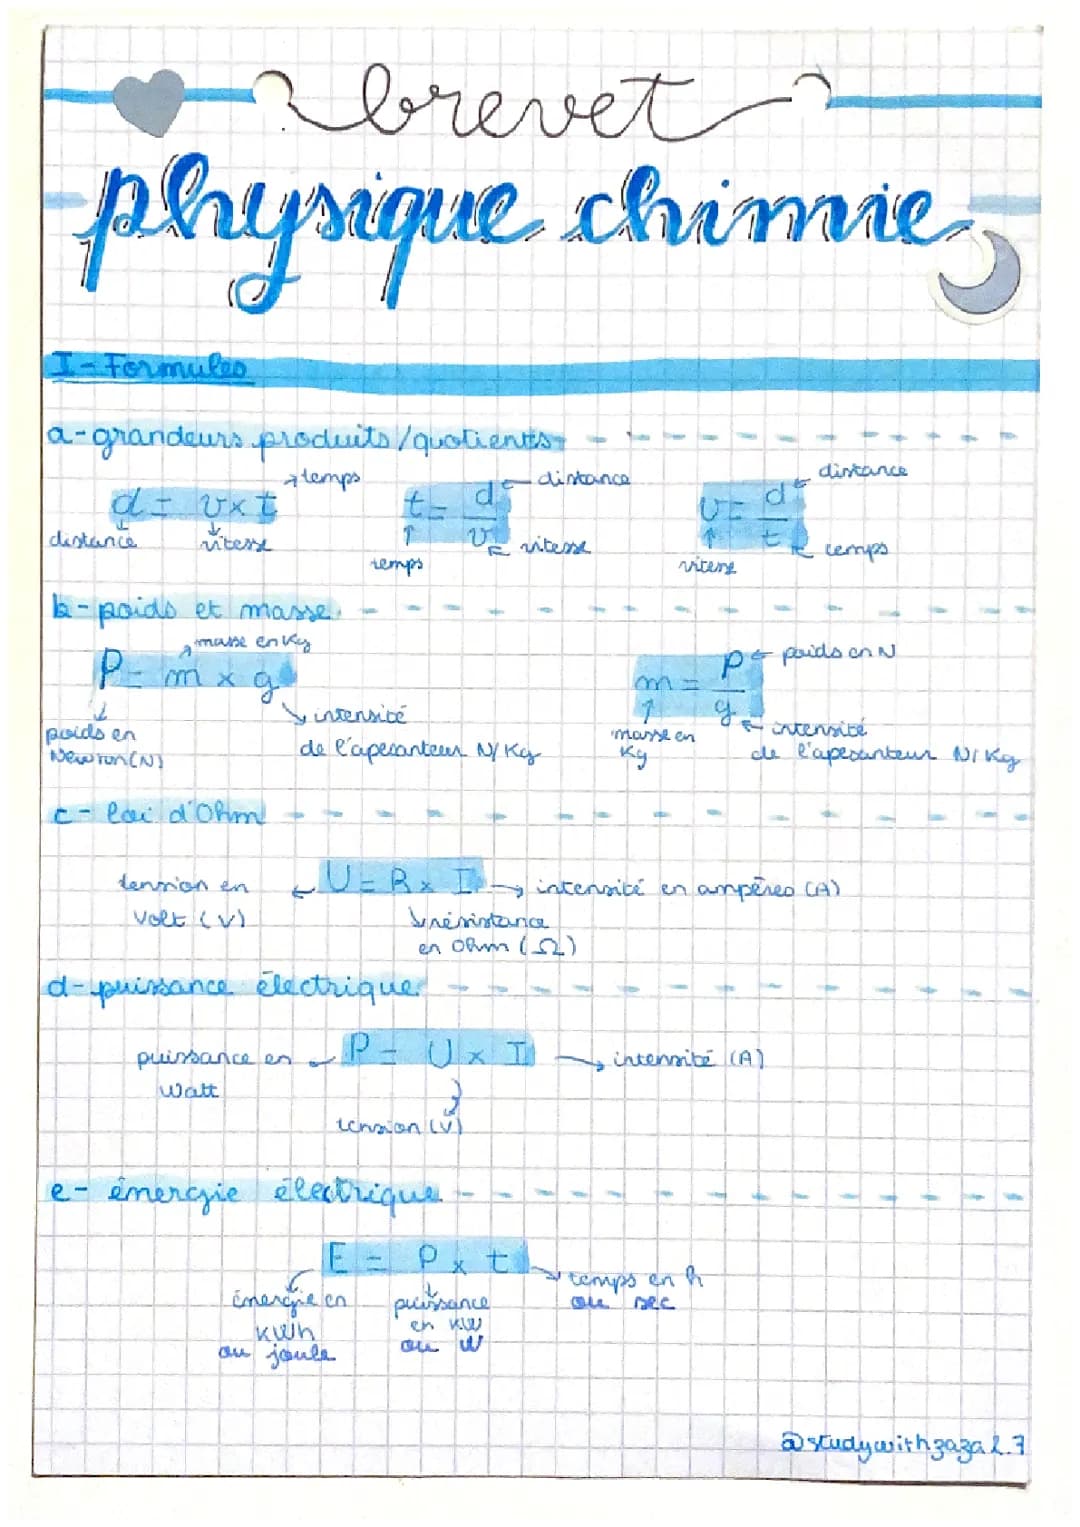 brevet
physique chimie
I - Formules
a - grandeurs produits / quotients
d = v x t
temps
distance
vitesse
t = d / v
distance
temps
vitesse
v = d / t
distance
vitesse
temps
b - poids et masse
masse en Kg
P = m x g
poids en
Newton (N)
intensité
de l'apesanteur N/Kg
m = P / g
poids en N
masse en
Kg
intensité
de l'apesanteur N/Kg
c - loi d'Ohm
tension en
Volt (V)
U = R x I
intensité en ampères (A)
résistance
en Ohm (Ω)
d - puissance électrique
puissance en
Watt
P = U x I
intensité (A)
tension (V)
e - énergie électrique
E = P x t
énergie en
KWh
ou joule
puissance
en KW
ou W
temps en h
ou sec
@studywithzaza2.7